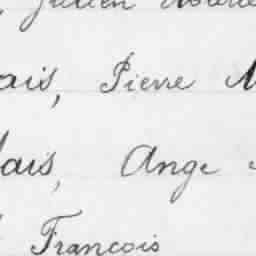 Julien
ais, Pierre M
lais, Ange
François